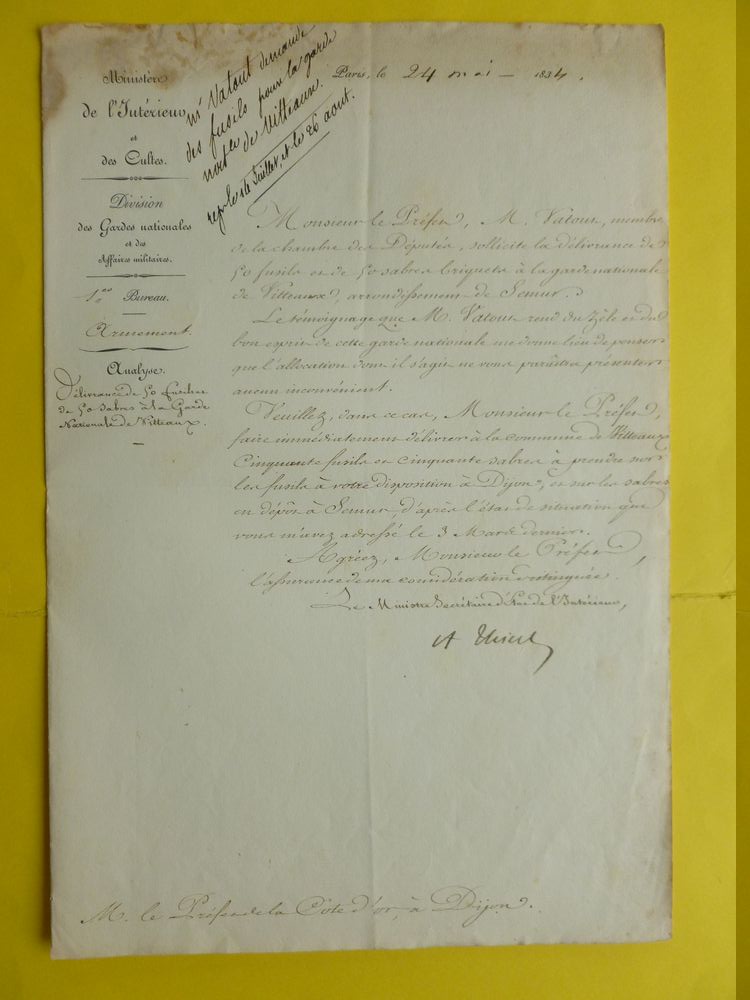 Ministère
de l'Intérieur
et
des Cultes.
Division
des Gardes nationales
et des
Affaires militaires.
1er Bureau.
Armement.
Analyse.
Délivrance de 50 fusils et
de 50 sabres à la Garde
Nationale de Vitteaux.
mr Vatout demande
des fusils pour la garde
nale de Vitteaux.
rep. le 16 Juillet, et le 26 aout.
Paris, le 24 mai - 1834.
Monsieur le Préfet, M. Vatout, membre
de la chambre des Députés, sollicite la délivrance de
50 fusils et de 50 sabres briquets à la garde nationale
de Vitteaux, arrondissement de Semur.
Le témoignage que M. Vatout rend du zèle et du
bon esprit de cette garde nationale me donne lieu de penser
que l'allocation dont il s'agit ne vous paraîtra présenter
aucun inconvénient.
Veuillez, dans ce cas, Monsieur le Préfet,
faire immédiatement délivrer à la commune de Vitteaux
Cinquante fusils et cinquante sabres à prendre sur
les fusils à votre disposition à Dijon, et sur les sabres
en dépôt à Semur, d'après l'état de situation que
vous m'avez adressé le 3 Mars dernier.
Agréez, Monsieur le Préfet,
l'assurance de ma considération distinguée.
Le Ministre Secrétaire d'Etat de l'Intérieur,
A Thiers
M. le Préfet de la Côte d'or, à Dijon.